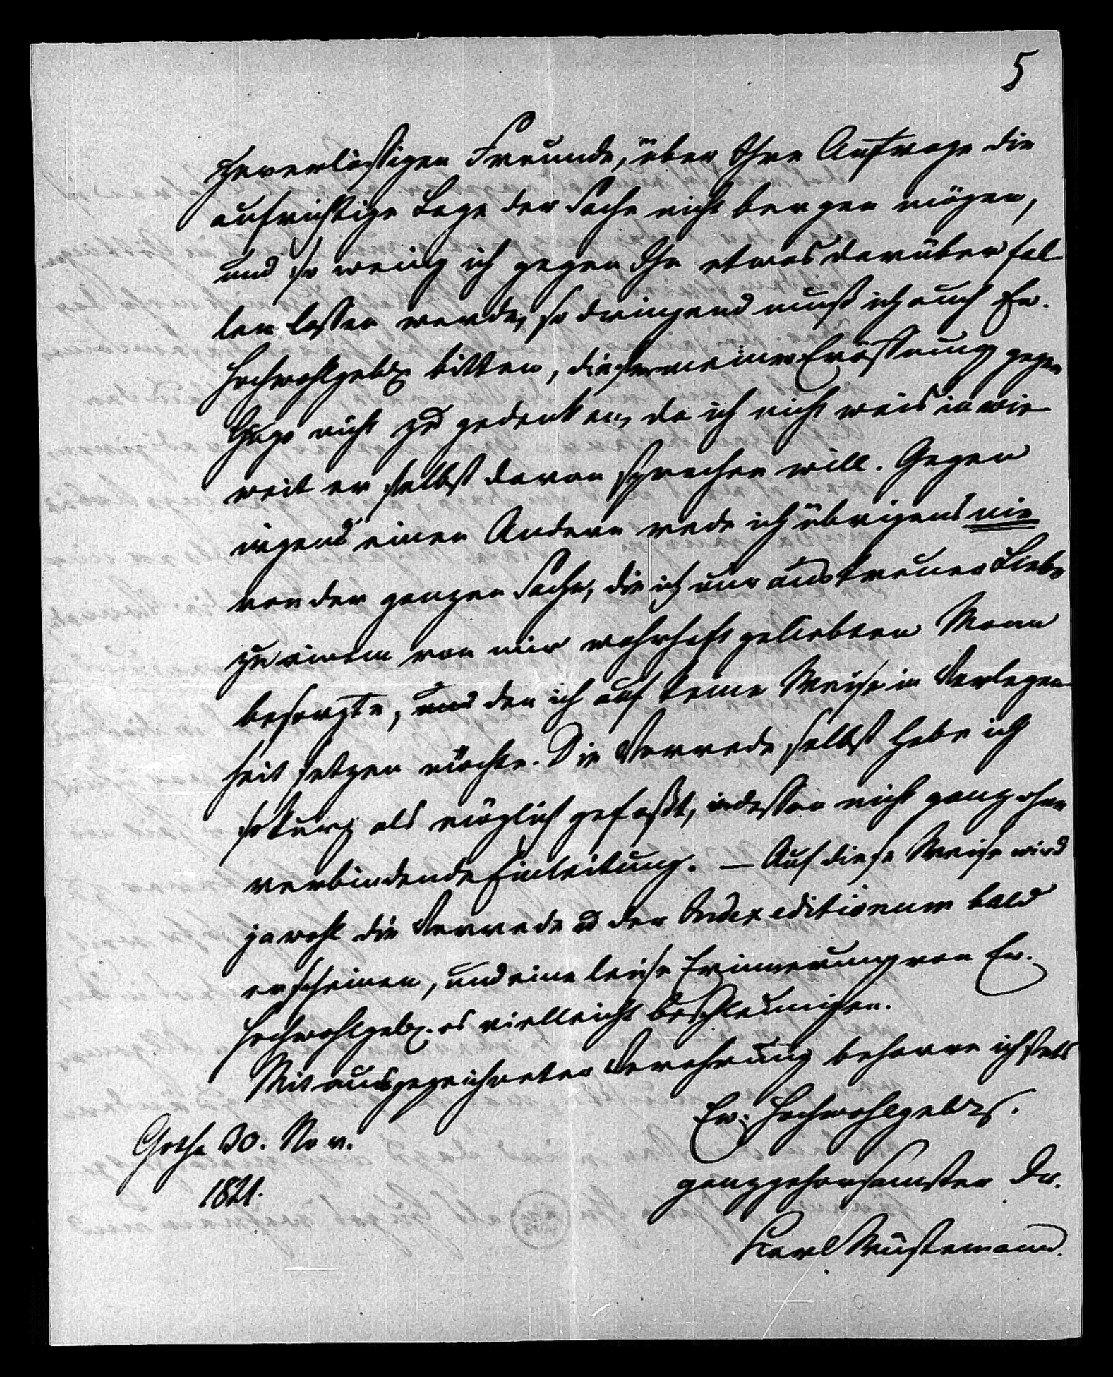 5
zuverläßigen Freunde, über Ihre Anfrage die
aufrichtige Lage der Sache nicht bergen mögen,
und so wenig ich gegen Ihn etwas darüber fal-
len lassen werde, so dringend muß ich auch Ew.
Hochwohlgeb. bitten, dieser meiner Eröffnung gegen
Hugo nicht zu gedenken, da ich nicht weis in wie
weit er selbst davon sprechen will. Gegen
irgend einen Andern rede ich übrigens nie
von der ganzen Sache, die ich nur aus treuer Liebe
zu einem von mir wahrhaft geliebten Mann
besorgte, und den ich auf keine Weise in Verlegen-
heit setzen möchte. Die Vorrede selbst habe ich
so kurz als möglich gefaßt, indessen nicht ganz ohne
verbindende Einleitung. – Auf diese Weise wird
ja wohl die Vorrede u der Index editionum bald
erscheinen, und eine leise Erinnerung von Ew.
Hochwohlgeb. es vielleicht beschleunigen.
Mit ausgezeichneter Verehrung beharre ich stets
Ew. Hochwohlgeb.
Gotha 30. Nov.
1821.
ganz gehorsamster Dr.
Karl Wüstemann.